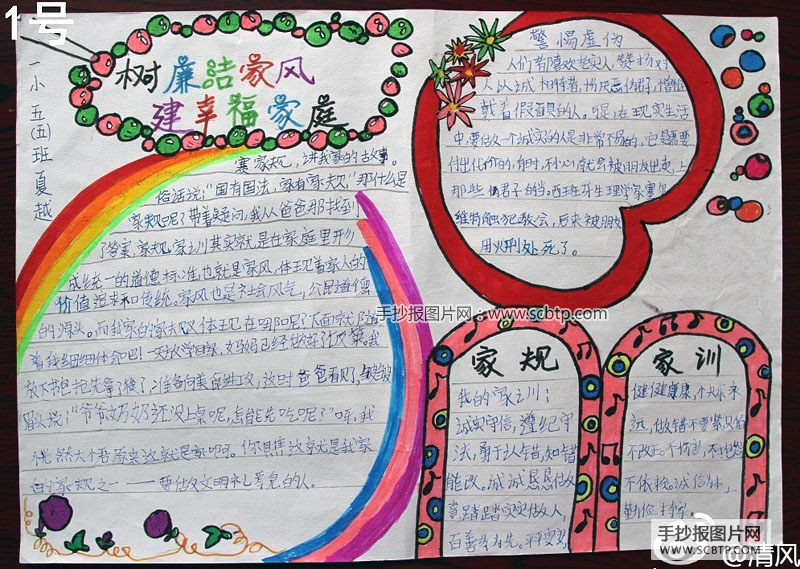 1号
一小 五(五)班夏越
树廉洁家风
建幸福家庭
寨家规,讲我家的古故事。
俗话说:"国有国法,家有家规,"那什么是
家规呢?带着疑问,我从爸爸那找到
了答案,家规,家训其实就是在家庭里形
成统一的道德标准,也就是家风,体现着家人的
价值追求和传统。家风也是社会风气,公民道德
的源头。而我家的家
体现在哪呢?下面就
着我细细体会吧!一天放学回家,妈妈已经做好了饭菜。我
放下书包抢先拿了筷子,准备向美食进攻,这时爸爸看见了,
眉头说:"爷爷奶奶还没上桌呢,怎能先吃呢?"
我
恍然大
原来这就是家
啊。你
这就是我家
的家规之一——要做文明礼
的人。
警惕虚伪
人们都喜欢老实人,赞扬对
人以诚相待者,
伪君,憎恨
戴着假面具的人。
在现实生活
中,要做一个诚实的人是非常不易的,它是需要
付出代价的,有时,不小心,就会被朋友出卖,上
那些
君子的当。西班牙生理学家塞尔
维特触犯教会,后来被朋友
用火刑处死了。
家规
我的"家训:
诚实守信,遵纪守
法,勇于认错,知错
能改。诚诚恳恳做
事,踏踏实实做人,
百善孝为先。平平安安
家训
健健康康,个火乐永
远,做错不要紧只怕
不改正
不依挠,诚信本
勤俭
手抄报图片网:www.scbtp.com
手抄报图片网
WWW.SCBTP.COM
@清风